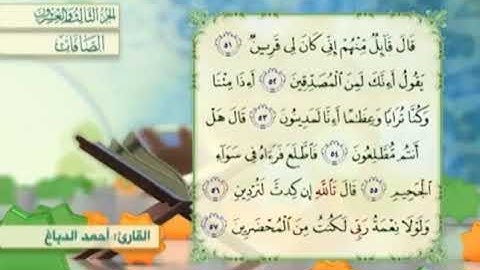 الجزء الثالث والعشرون
الصافات
قَالَ قَآئِلٌ مِّنْهُمْ إِنِّى كَانَ لِى قَرِينٌ ٥١
يَقُولُ أَءِنَّكَ لَمِنَ ٱلْمُصَدِّقِينَ ٥٢ أَءِذَا مِتْنَا
وَكُنَّا تُرَابًا وَعِظَٰمًا أَءِنَّا لَمَدِينُونَ ٥٣ قَالَ هَلْ
أَنتُم مُّطَّلِعُونَ ٥٤ فَٱطَّلَعَ فَرَءَاهُ فِى سَوَآءِ
ٱلْجَحِيمِ ٥٥ قَالَ تَٱللَّهِ إِن كِدتَّ لَتُرْدِينِ ٥٦
وَلَوْلَا نِعْمَةُ رَبِّى لَكُنتُ مِنَ ٱلْمُحْضَرِينَ ٥٧
القارئ: أحمد الدباغ